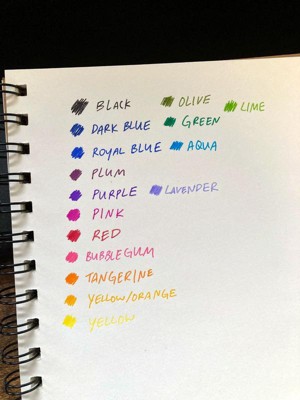 BLACK OLIVE LIME
DARK BLUE GREEN
ROYAL BLUE AQUA
PLUM
PURPLE LAVENDER
PINK
RED
BUBBLEGUM
TANGERINE
YELLOW/ORANGE
YELLOW